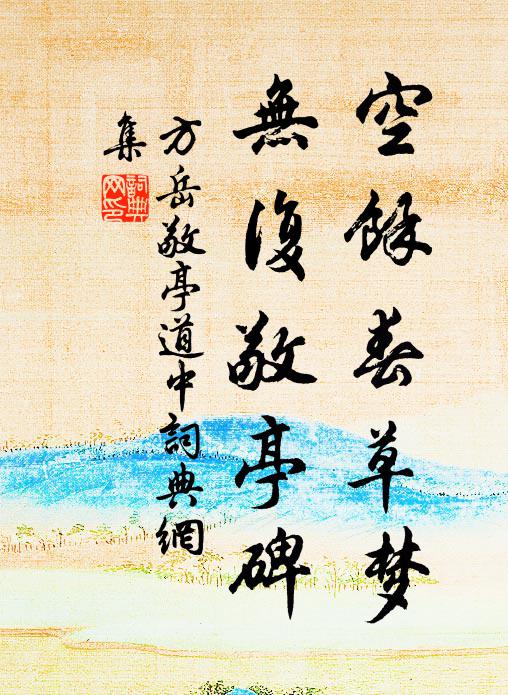 空餘春草梦
無復敬亭碑
方岳敬亭道中詞典網
集
詞典
网印